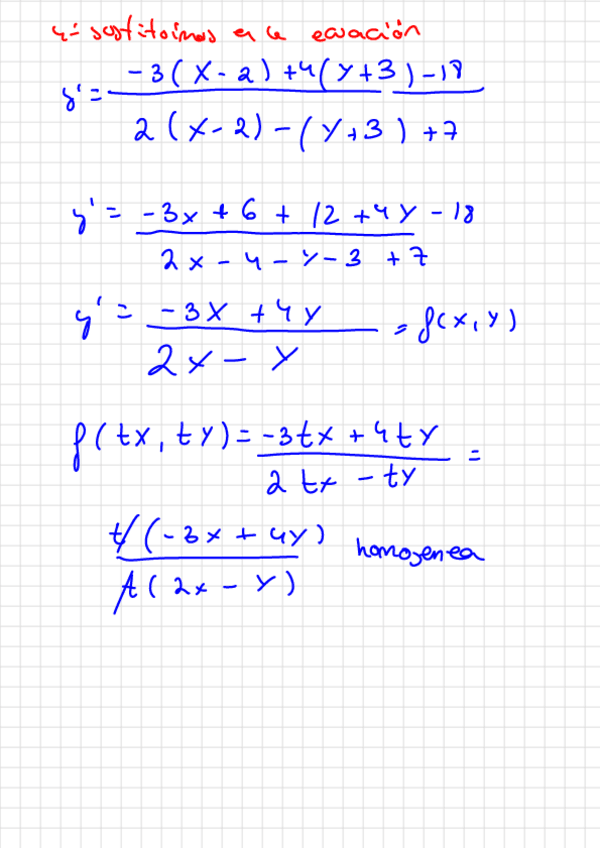 4- sustituimos en la ecuación
y' = (-3(X-2)+4(Y+3)-18) / (2(X-2)-(Y+3)+7)
y' = (-3x+6+12+4Y-18) / (2x-4-Y-3+7)
y' = (-3X+4Y) / (2X-Y) = f(X,Y)
f(tX,tY) = (-3tX+4tY) / (2tx-tY) =
t(-3x+4Y) / t(2x-Y) homogenea